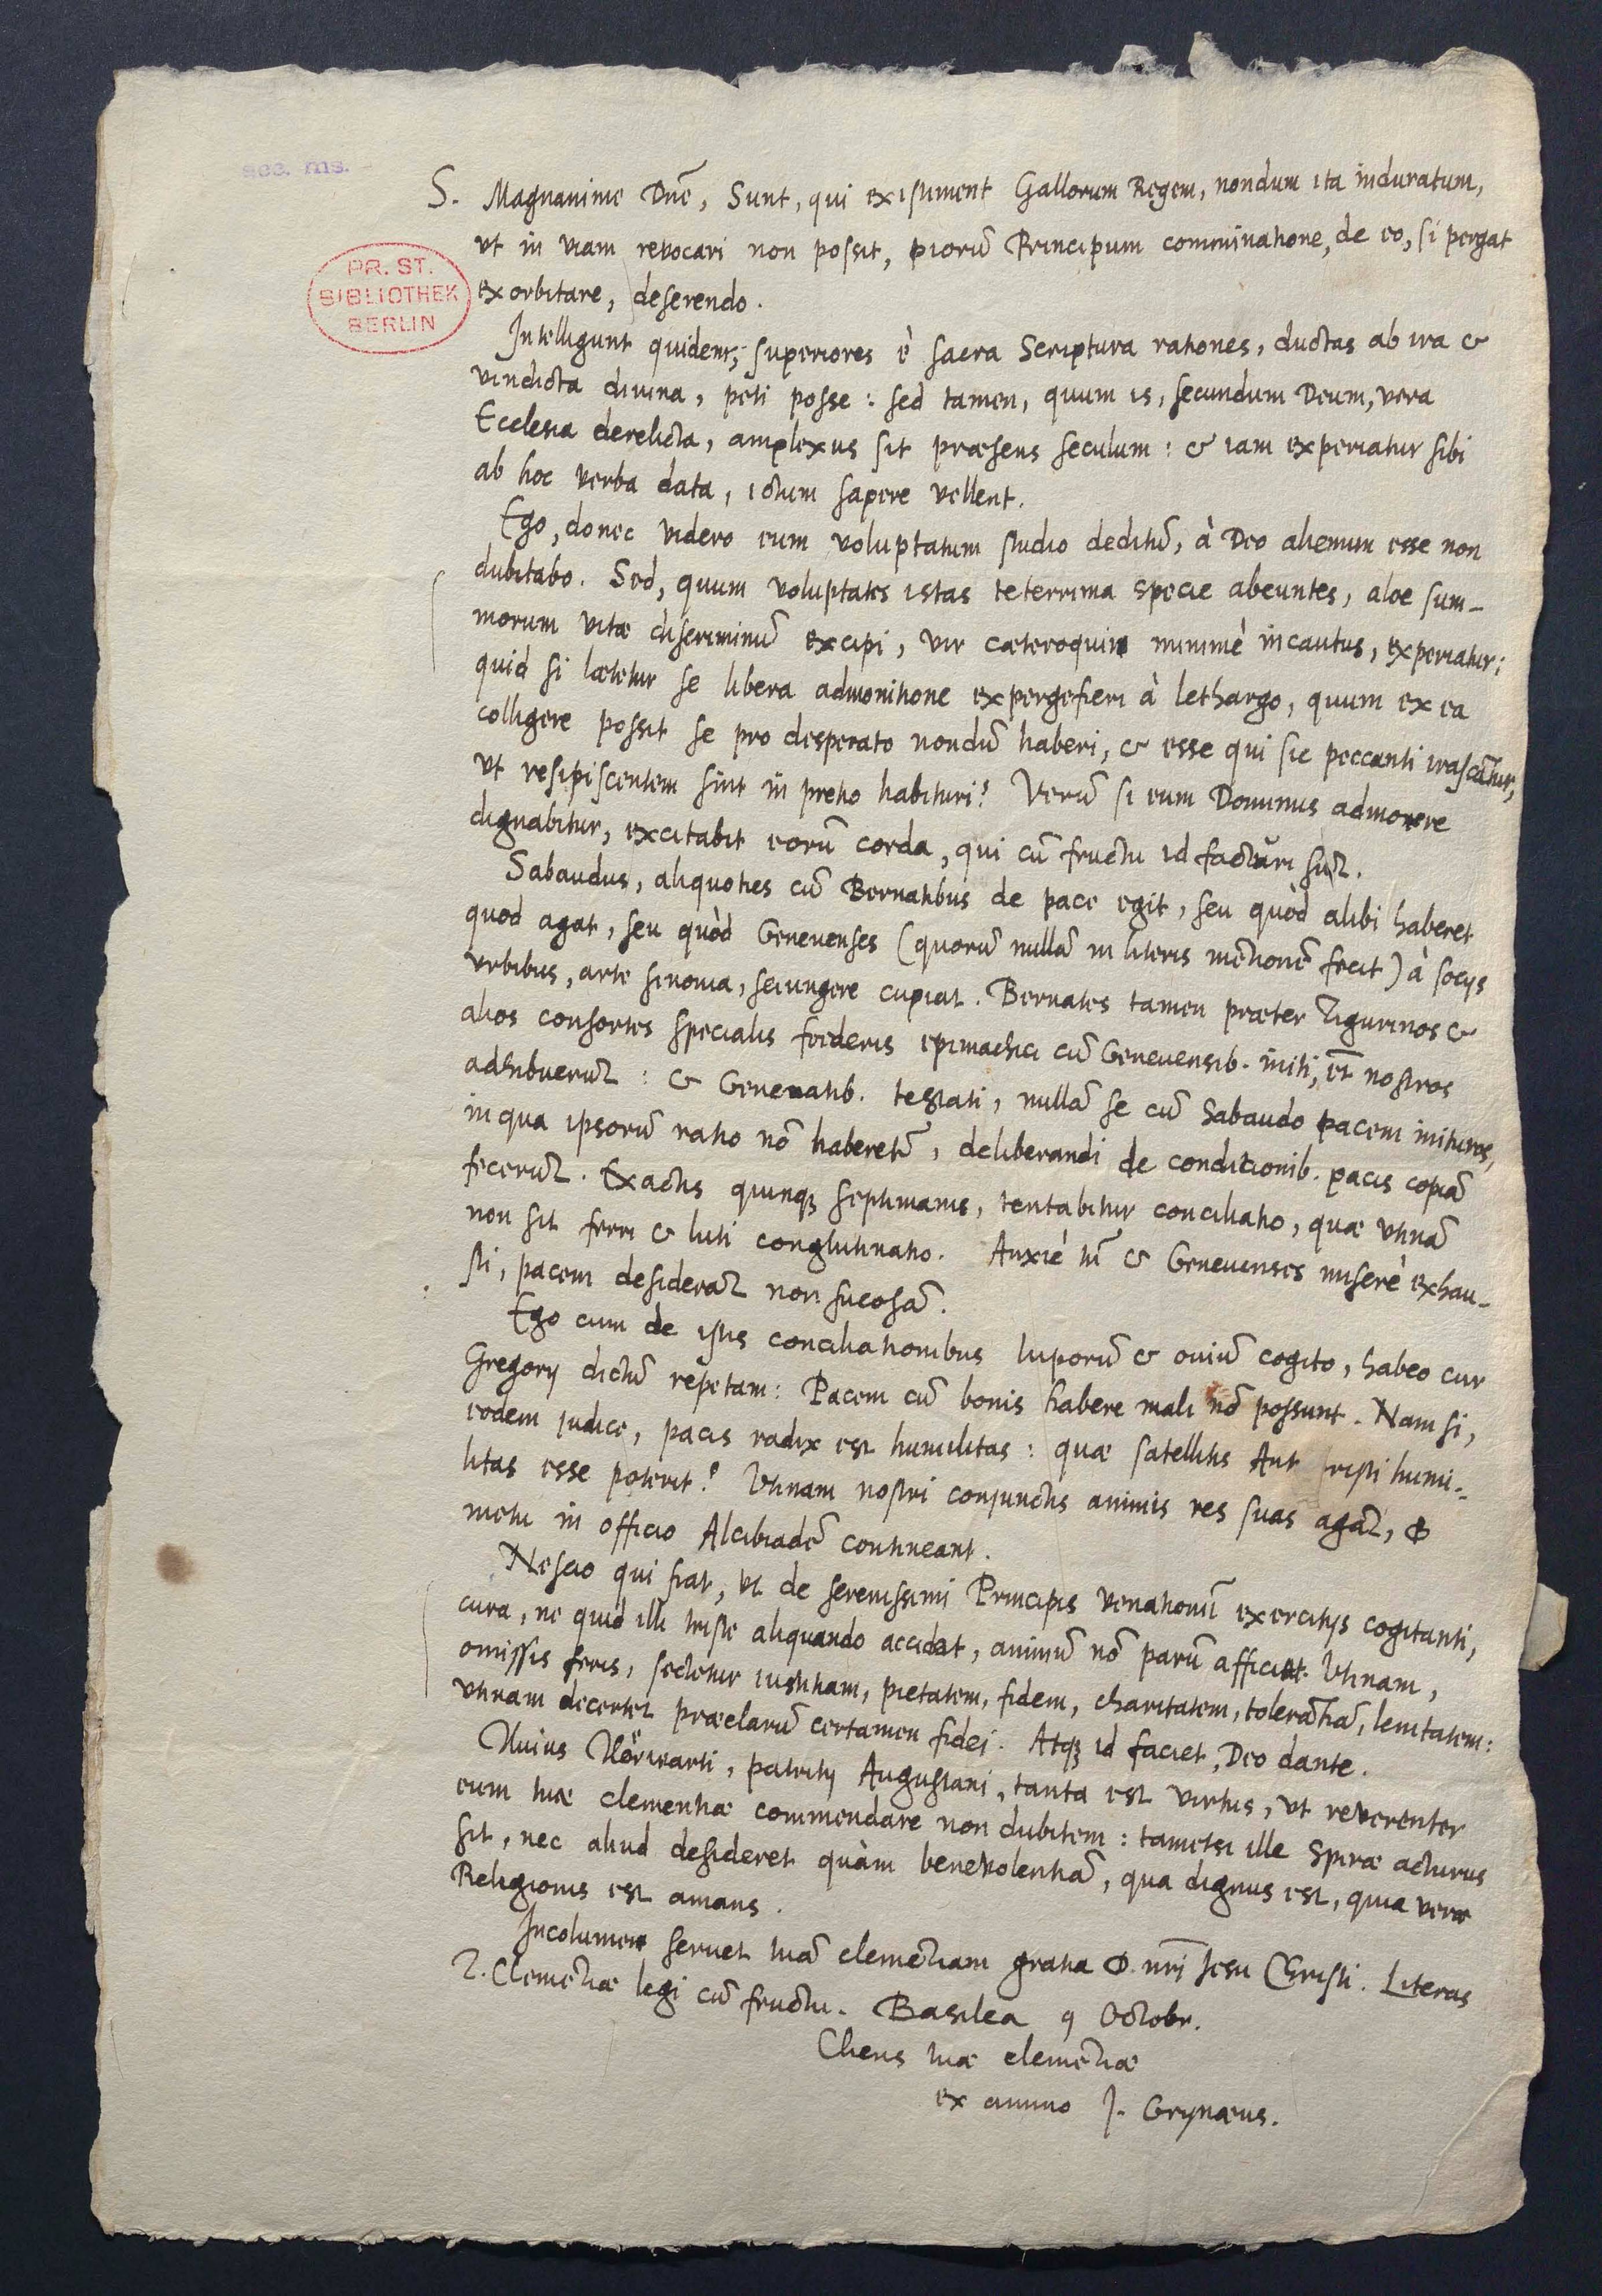 acc. ms.
PR. ST.
BIBLIOTHEK
BERLIN
S. Magnanime Dnē, Sunt, qui existiment Gallorum Regem, nondum ita induratum,
vt in viam revocari non possit, piorū Principum comminatione, de eo, si pergat
exorbitare, deserendo.
Intelligunt quidem, superiores è sacra Scriptura rationes, ductas ab ira &
vindicta divina, peti posse: sed tamen, quum is, secundum Deum, vera
Ecclesia derelicta, amplexus sit præsens seculum: & iam experiatur sibi
ab hoc verba data, ictum sapere vellent.
Ego, donec videro eum voluptatum studio deditū, à Deo alienum esse non
dubitabo. Sed, quum voluptates istas teterrima specie abeuntes, aloe sum-
morum vitæ discriminū excipi, vir cæteroquin minimè incautus, experiatur:
quid si lætetur se libera admonitione expergefieri à lethargo, quum ex ea
colligere possit se pro desperato nondū haberi, & esse qui sic peccanti irascātur,
vt resipiscentem sint in pretio habituri? Verū si eum Dominus admonere
dignabitur, excitabit eorū corda, qui cū fructu id facturi sūt.
Sabaudus, aliquoties cū Bernatibus de pace egit, seu quòd alibi haberet
quod agat, seu quòd Genevenses (quorū nullā in literis mētionē fecit) à socijs
vrbibus, arte sinonia, seiungere cupiat. Bernates tamen præter Tigurinos &
alios consortes specialis foederis epimachici cū Genevensib. initi, et nostros
adhibuerūt: & Genevatib. testati, nullā se cū Sabaudo pacem inituros,
in qua ipsorū ratio nō haberet̄, deliberandi de conditionib. pacis copiā
fecerūt. Exactis quinq; septimanis, tentabitur conciliatio, quæ vtinā
non sit ferri & luti conglutinatio. Anxiè tn̄ & Genevenses miserè exhau-
sti, pacem desiderāt non fucosā.
Ego cum de istis conciliationibus luporū & oviū cogito, habeo cur
Gregorij dictū repetam: Pacem cū bonis habere mali nō possunt. Nam si,
eodem judice, pacis radix est humilitas: quæ satellitis Ant risti humi-
litas esse poterit? Vtinam nostri conjunctis animis res suas agāt, &
metu in officio Alcibiadē contineant.
Nescio qui fiat, vt de serenissimi Principis venationū exercitijs cogitanti,
cura, ne quid illi triste aliquando accidat, animū nō parū afficiat. Vtinam,
omissis feris, sectetur iustitiam, pietatem, fidem, charitatem, tolerātiā, lenitatem:
vtinam decertet præclarū certamen fidei. Atq; id faciet, Deo dante.
Huius Hörwarti, patritij Augustani, tanta est virtus, vt reverenter
eum tuæ clementiæ commendare non dubitem: tametsi ille Spiræ acturus
sit, nec aliud desideret quàm benevolentiā, qua dignus est, quia veræ
Religionis est amans.
Incolumem servet tuā clemētiam gratia D. nr̄i Jesu Christi. Literas
T. Clemētiæ legi cū fructu. Basilea 9 Octobr.
Cliens tuæ clemētiæ
ex animo J. Grynæus.